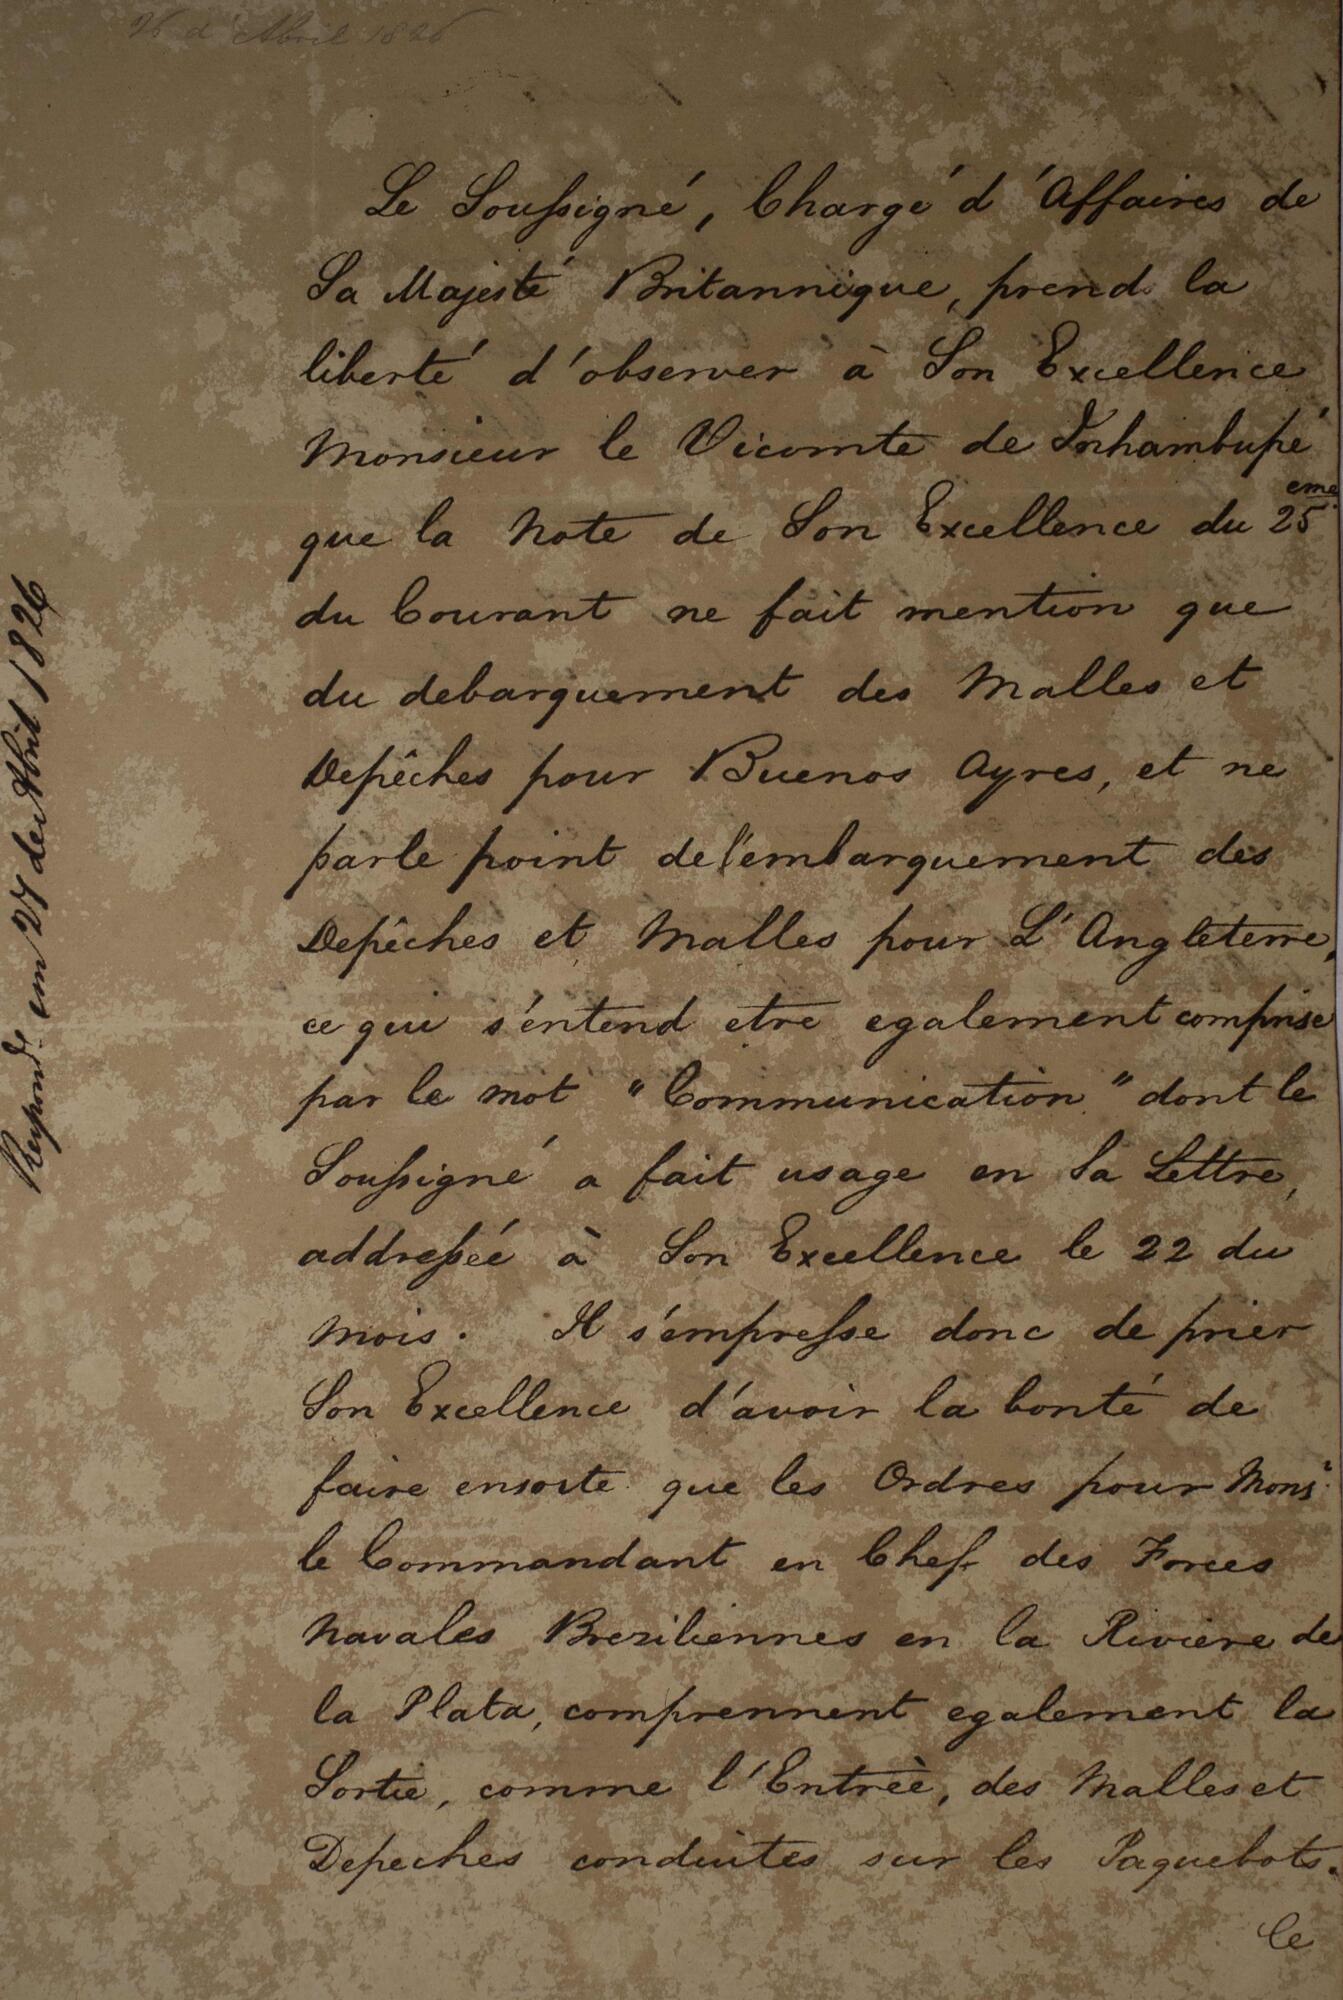 26 d'Abril 1826
Le Soussigné, Chargé d'Affaires de
Sa Majesté Britannique, prend la
liberté d'observer à Son Excellence
Monsieur le Vicomte de Inhambupé
que la Note de Son Excellence du 25eme
du Courant ne fait mention que
du debarquement des Malles et
Depêches pour Buenos Ayres, et ne
parle point de l'embarquement des
Depêches et Malles pour L'Angleterre,
ce qui s'entend etre egalement comprise
par le mot "Communication" dont le
Soussigné a fait usage en Sa Lettre,
addressée à Son Excellence le 22 du
Mois. Il s'empresse donc de prier
Son Excellence d'avoir la bonté de
faire ensorte que les Ordres pour Monsr
le Commandant en Chef des Forces
Navales Breziliennes en la Riviere de
la Plata, comprennent egalement la
Sortie, comme l'Entrèe, des Malles et
Depeches conduites sur les Paquebots.
Le
Respond.a em 27 de Abril 1826